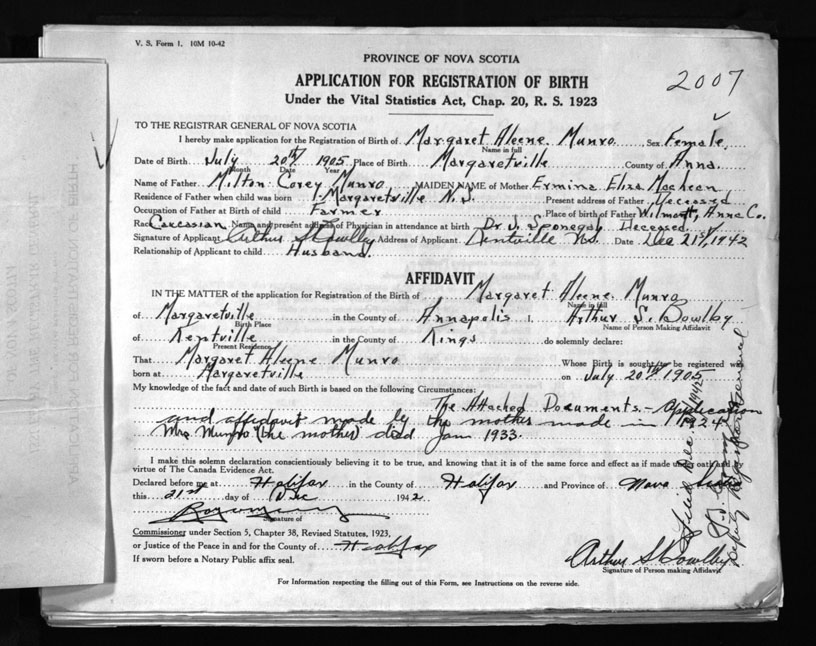 V. S. Form 1. 10M 10-42
PROVINCE OF NOVA SCOTIA
2007
APPLICATION FOR REGISTRATION OF BIRTH
Under the Vital Statistics Act, Chap. 20, R. S. 1923
TO THE REGISTRAR GENERAL OF NOVA SCOTIA
I hereby make application for the Registration of Birth of Margaret Aleene Munro Sex Female
Name in full
Date of Birth July 20th 1905 Place of Birth Margaretville County of Anna.
Month Date Year
Name of Father Milton Corey Munro MAIDEN NAME of Mother Ermina Eliza
Residence of Father when child was born Margaretville N.S. Present address of Father Deceased
Occupation of Father at Birth of child Farmer Place of birth of Father Wilmott, Anna Co.
Race Caucasian Name and present address of Physician in attendance at birth Dr. J. Sponegal Deceased
Signature of Applicant Arthur S Bowlby Address of Applicant Kentville N.S. Date Dec 21st/1942
Relationship of Applicant to child Husband.
AFFIDAVIT
IN THE MATTER of the application for Registration of the Birth of Margaret Aleene Munro
Name in full
of Margaretville in the County of Annapolis I, Arthur S. Bowlby
Birth Place Name of Person Making Affidavit
of Kentville in the County of Kings do solemnly declare:
Present Residence
That Margaret Aleene Munro Whose Birth is sought to be registered was
born at Margaretville on July 20th 1905
My knowledge of the fact and date of such Birth is based on the following Circumstances:
The Attached Documents - Application
and affidavit made by the mother made in 1924
Mrs Munro (the mother) died Jan 1933.
I make this solemn declaration conscientiously believing it to be true, and knowing that it is of the same force and effect as if made under oath and by
virtue of The Canada Evidence Act.
Declared before me at Halifax in the County of Halifax and Province of Nova Scotia
this 21st day of Dec 1942
Signature of
Commissioner under Section 5, Chapter 38, Revised Statutes, 1923,
or Justice of the Peace in and for the County of Halifax
If sworn before a Notary Public affix seal.
Arthur S Bowlby
Signature of Person making Affidavit
For Information respecting the filling out of this Form, see Instructions on the reverse side.
Deputy Registrar General